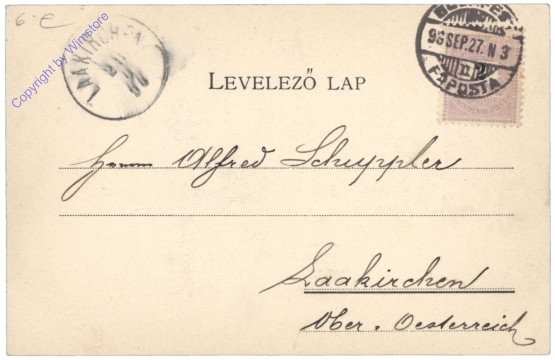 6.-E
Copyright by Wimstore
LAAKIRCHEN
BUDAPEST
96 SEP. 27. N 3
FŐPOSTA
LEVELEZŐ LAP
Herrn Alfred Schuppler
Laakirchen
Ober. Oesterreich